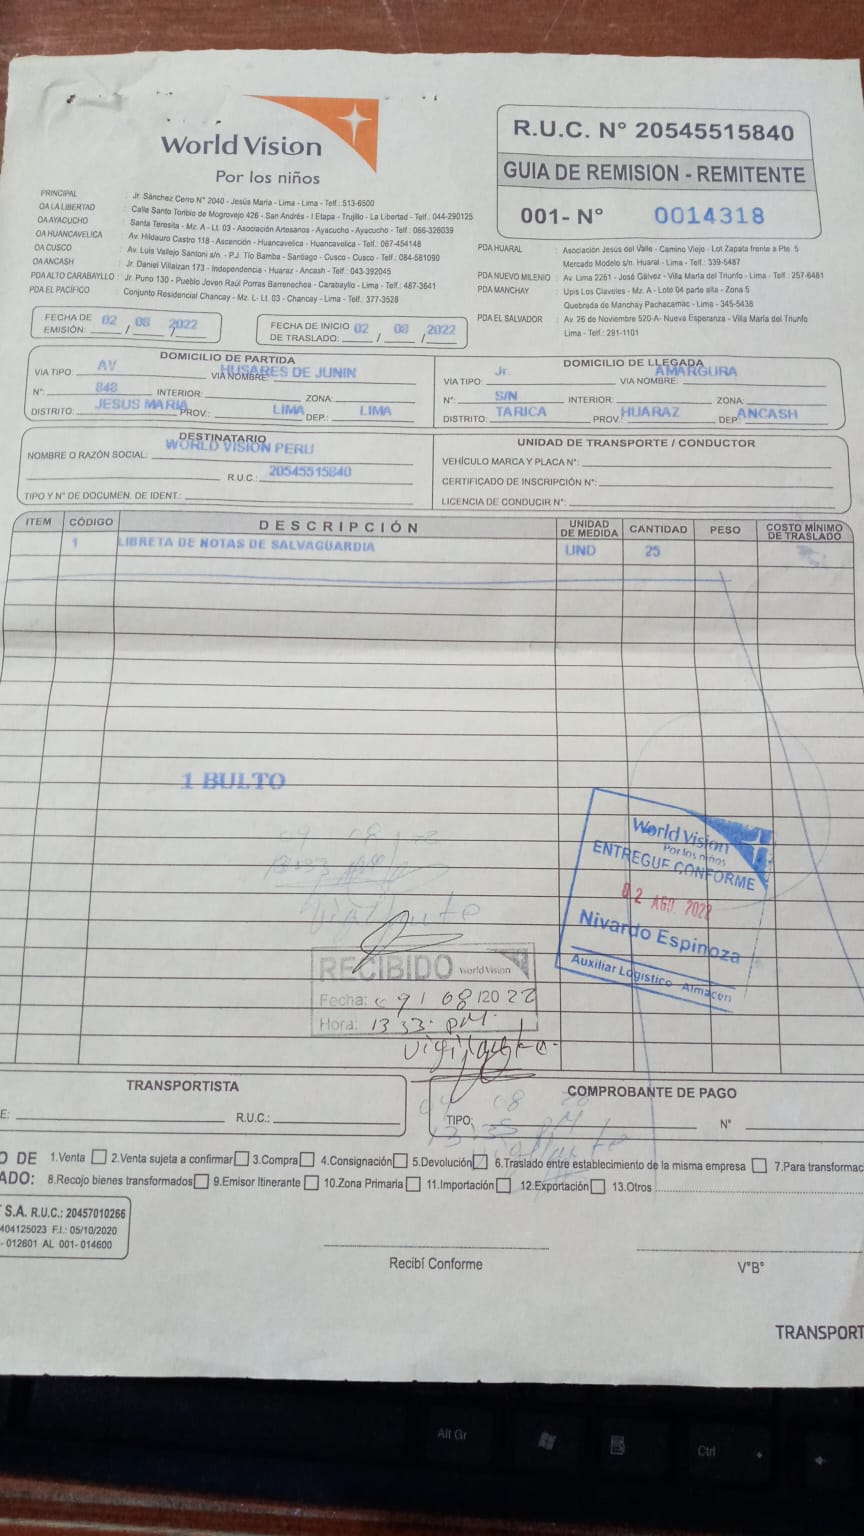 World Vision
Por los niños
R.U.C. N° 20545515840
GUIA DE REMISION - REMITENTE
001- N° 0014318
PRINCIPAL : Jr. Sánchez Cerro N° 2040 - Jesús María - Lima - Lima - Telf.: 513-6500
OA LA LIBERTAD : Calle Santo Toribio de Mogrovejo 426 - San Andrés - I Etapa - Trujillo - La Libertad - Telf.: 044-290125
OA AYACUCHO : Santa Teresita - Mz. A - Lt. 03 - Asociación Artesanos - Ayacucho - Ayacucho - Telf.: 066-326039
OA HUANCAVELICA : Av. Hildauro Castro 118 - Ascención - Huancavelica - Huancavelica - Telf.: 067-454148
OA CUSCO : Av. Luis Vallejo Santoni s/n - P.J. Tío Bamba - Santiago - Cusco - Cusco - Telf.: 084-581090
OA ANCASH : Jr. Daniel Villaizan 173 - Independencia - Huaraz - Ancash - Telf.: 043-392045
PDA ALTO CARABAYLLO : Jr. Puno 130 - Pueblo Joven Raúl Porras Barrenechea - Carabayllo - Lima - Telf.: 487-3641
PDA EL PACÍFICO : Conjunto Residencial Chancay - Mz. L- Lt. 03 - Chancay - Lima - Telf.: 377-3528
PDA HUARAL : Asociación Jesús del Valle - Camino Viejo - Lot Zapata frente a Pte. 5
Mercado Modelo s/n. Huaral - Lima - Telf.: 339-5467
PDA NUEVO MILENIO : Av. Lima 2261 - José Gálvez - Villa María del Triunfo - Lima - Telf.: 257-6481
PDA MANCHAY : Upis Los Claveles - Mz. A - Lote 04 parte alta - Zona 5
Quebrada de Manchay Pachacamac - Lima - 345-5438
PDA EL SALVADOR : Av. 26 de Noviembre 520-A- Nueva Esperanza - Villa María del Triunfo
Lima - Telf.: 291-1101
FECHA DE EMISIÓN: 02 / 08 / 2022
FECHA DE INICIO DE TRASLADO: 02 / 08 / 2022
DOMICILIO DE PARTIDA
VIA TIPO: AV VIA NOMBRE: HUSARES DE JUNIN
N°: 848 INTERIOR: ZONA:
DISTRITO: JESUS MARIA PROV.: LIMA DEP.: LIMA
DOMICILIO DE LLEGADA
VIA TIPO: Jr. VIA NOMBRE: AMARGURA
N°: S/N INTERIOR: ZONA:
DISTRITO: TARICA PROV: HUARAZ DEP: ANCASH
DESTINATARIO
NOMBRE O RAZÓN SOCIAL: WORLD VISION PERU
R.U.C.: 20545515840
TIPO Y N° DE DOCUMEN. DE IDENT.:
UNIDAD DE TRANSPORTE / CONDUCTOR
VEHÍCULO MARCA Y PLACA N°:
CERTIFICADO DE INSCRIPCIÓN N°:
LICENCIA DE CONDUCIR N°:
ITEM CÓDIGO DESCRIPCIÓN UNIDAD DE MEDIDA CANTIDAD PESO COSTO MÍNIMO DE TRASLADO
1 LIBRETA DE NOTAS DE SALVAGUARDIA UND 25
1 BULTO
World Vision
Por los niños
ENTREGUE CONFORME
02 AGO 2022
Nivardo Espinoza
Auxiliar Logístico Almacen
RECIBIDO World Vision
Fecha: 09/08/2022
Hora: 13 33. PM.
Vigilante.
TRANSPORTISTA
E: R.U.C.:
COMPROBANTE DE PAGO
TIPO: N°
O DE 1.Venta 2.Venta sujeta a confirmar 3.Compra 4.Consignación 5.Devolución 6.Traslado entre establecimiento de la misma empresa 7.Para transformac
ADO: 8.Recojo bienes transformados 9.Emisor Itinerante 10.Zona Primaria 11.Importación 12.Exportación 13.Otros
S.A. R.U.C.: 20457010266
404125023 F.I.: 05/10/2020
- 012601 AL 001- 014600
Recibí Conforme
V°B°
TRANSPORT
Alt Gr
Ctrl